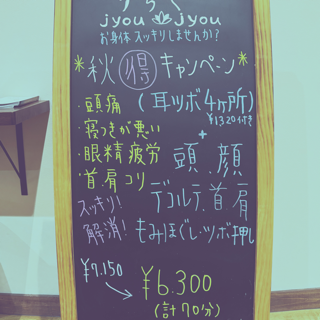 jyou jyou
お身体スッキリしませんか?
*秋㊝キャンペーン*
・頭痛
・寝つきが悪い
・眼精疲労
・首.肩コリ
スッキリ!
解消!
(耳ツボ4ヶ所)
¥1320付き
+
頭.顔
デコルテ.首.肩
もみほぐし・ツボ押し
¥7.150
¥6.300
(計70分)